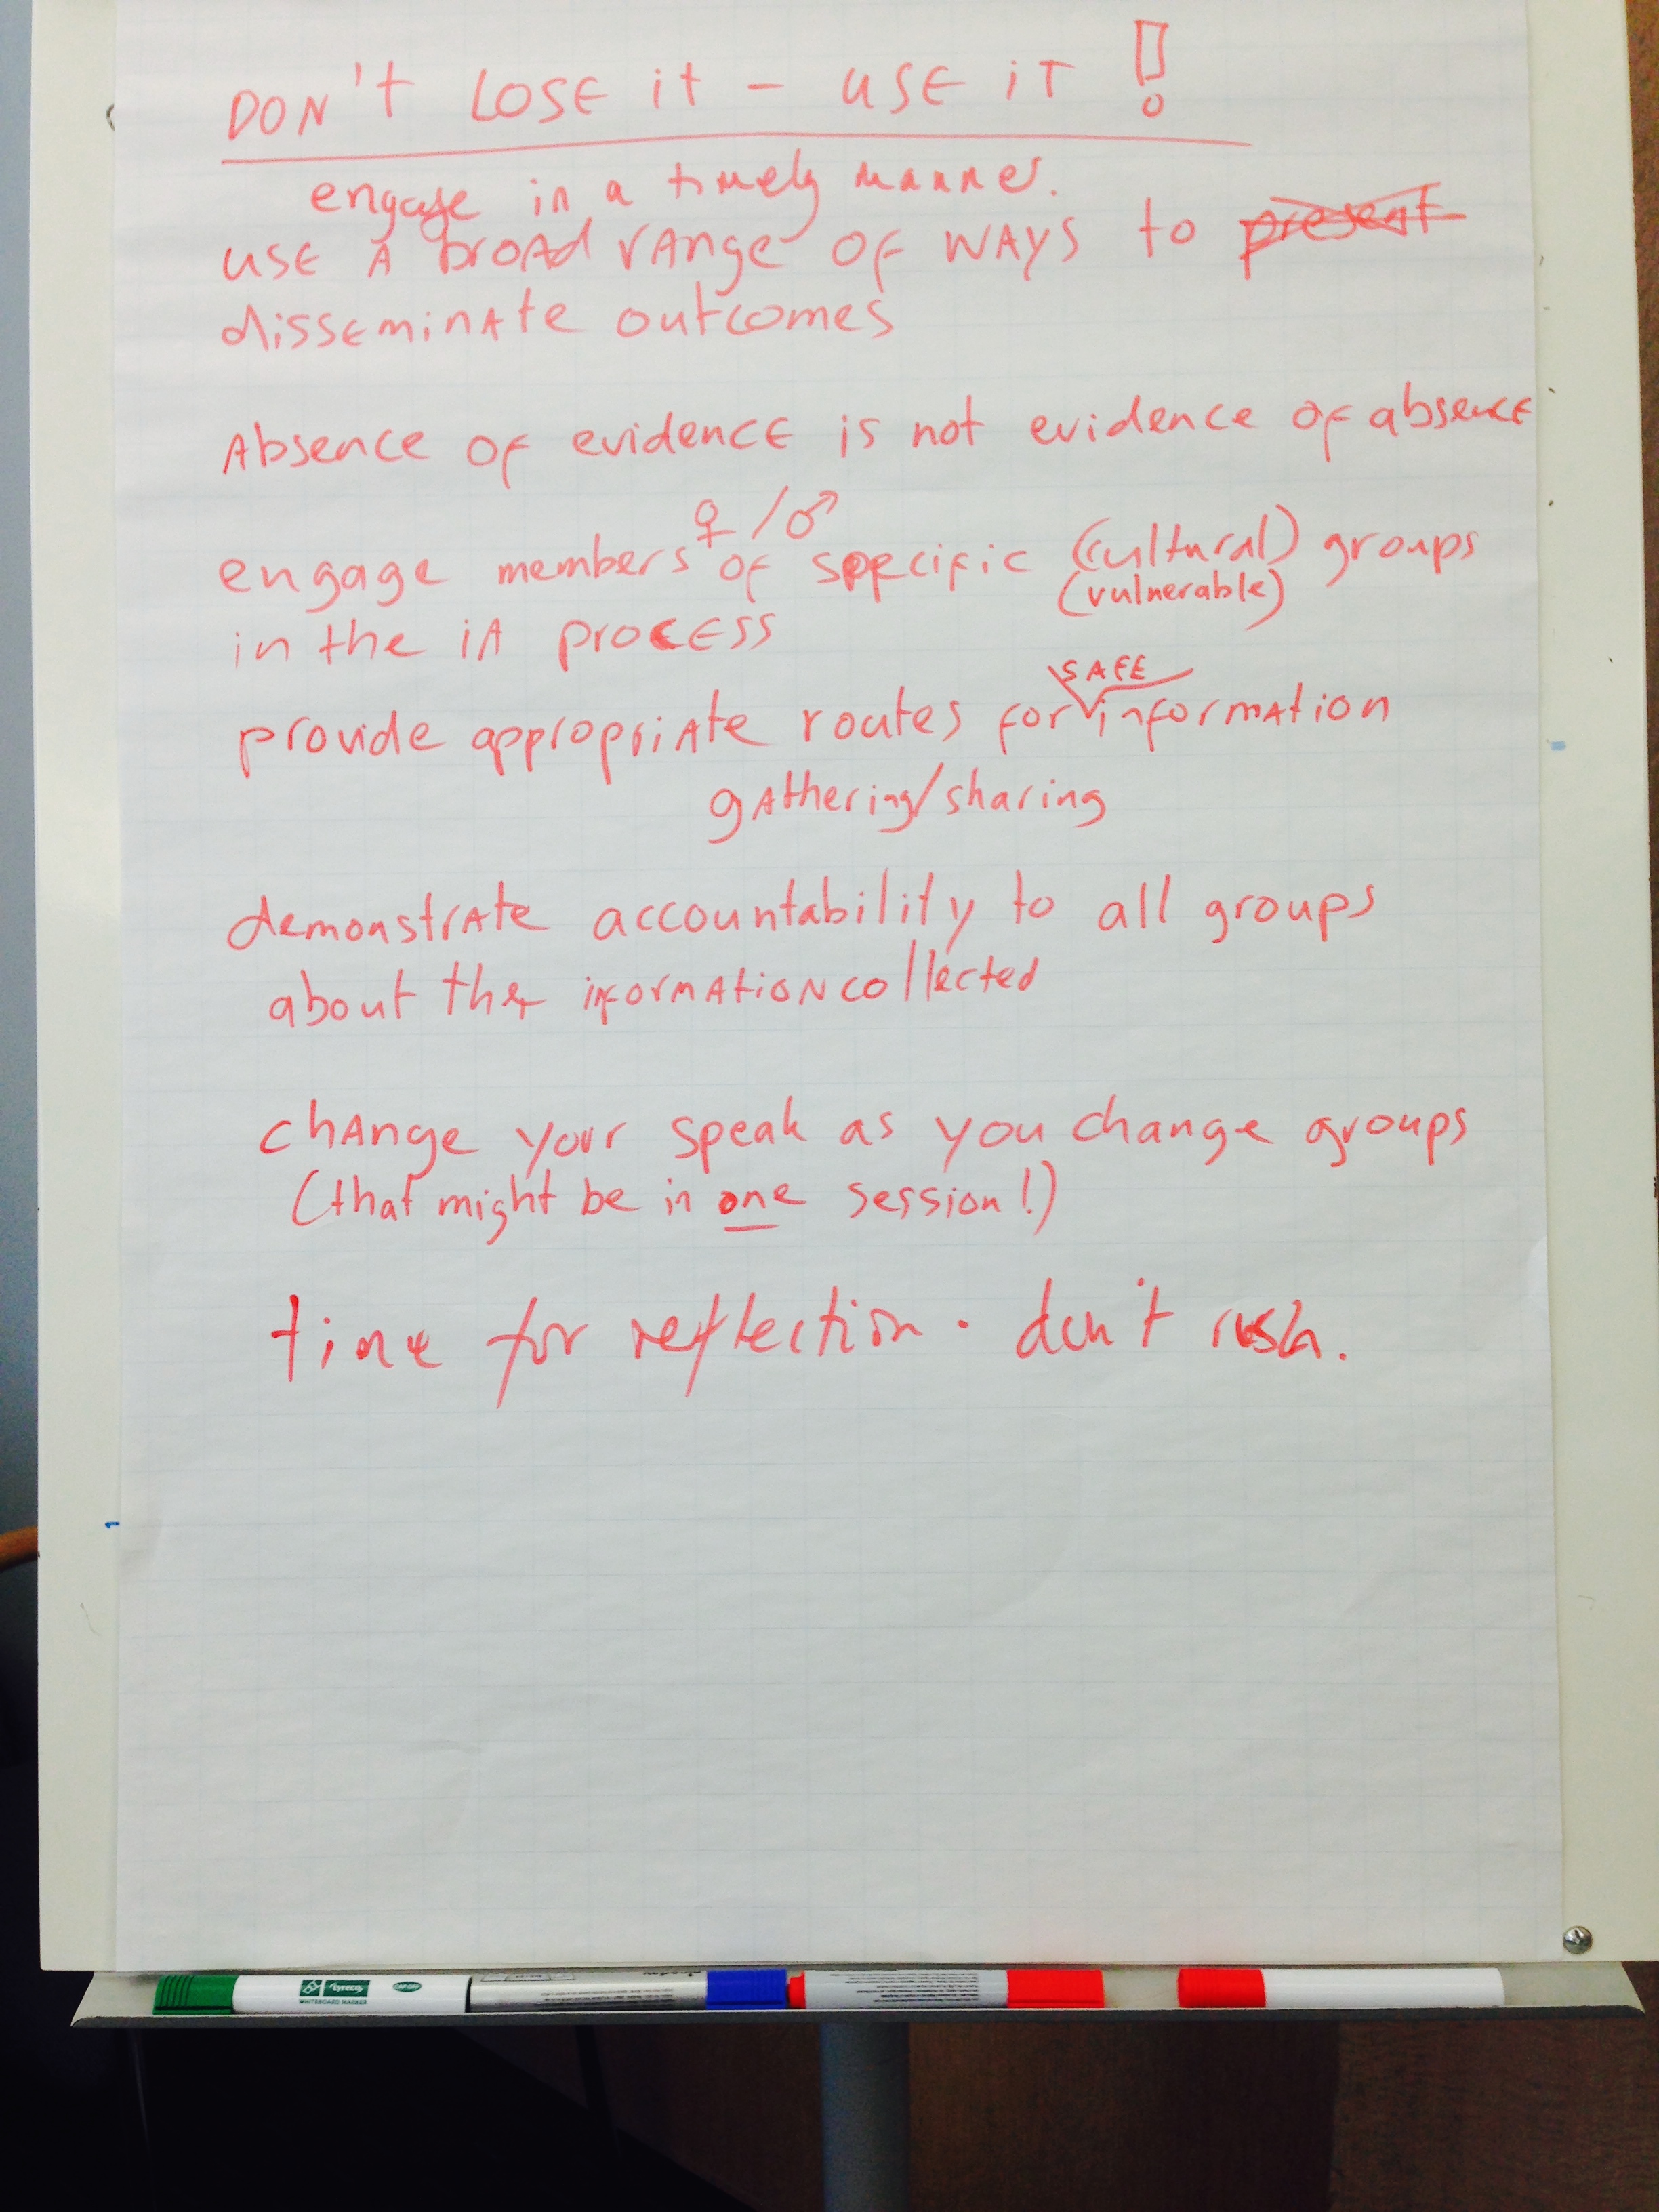 DON't LOSE it - USE iT !
engage in a timely manner.
USE A broAd rAnge OF WAYS to present
disseminAte outcomes
Absence OF evidence is not evidence of absence
♀/♂
engage members of specific (cultural) groups
(vulnerable)
in the iA process
SAFE
provide appropriAte routes for informAtion
gAthering/sharing
demonstrAte accountability to all groups
about the informAtion collected
chAnge your speak as you change groups
(that might be in one session!)
time for reflection. don't rush.
lyreco
WHITEBOARD MARKER